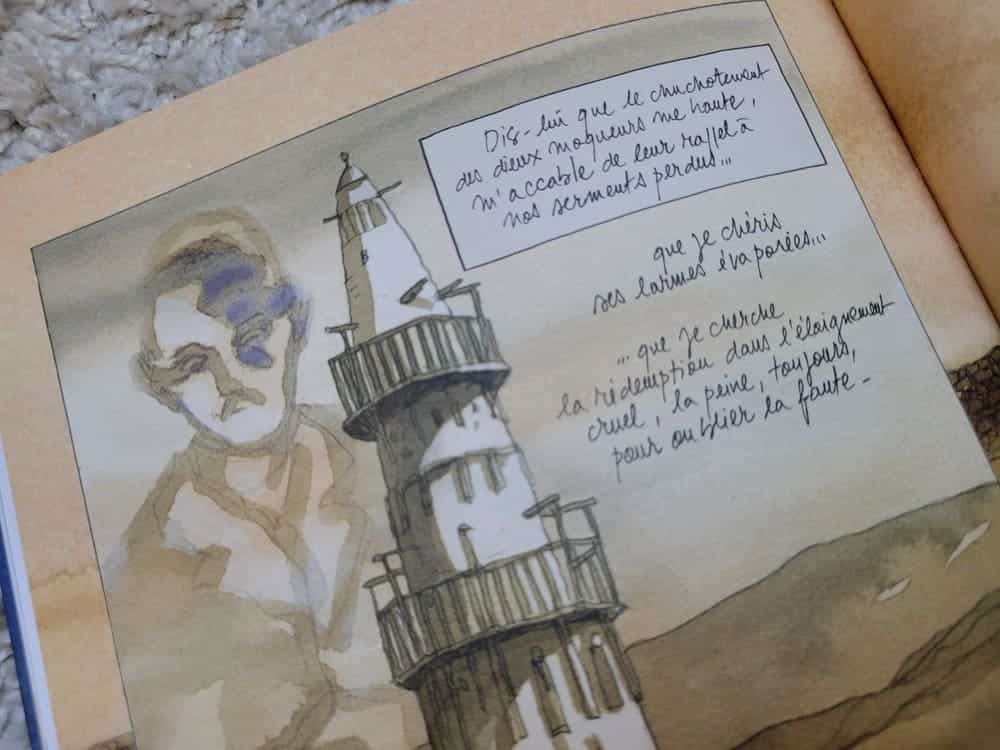 Dis-lui que le chuchotement
des dieux moqueurs me hante,
m'accable de leur rappel à
nos serments perdus...
que je chéris
ses larmes évaporées...
...que je cherche
la rédemption dans l'éloignement
cruel, la peine, toujours,
pour oublier la faute-